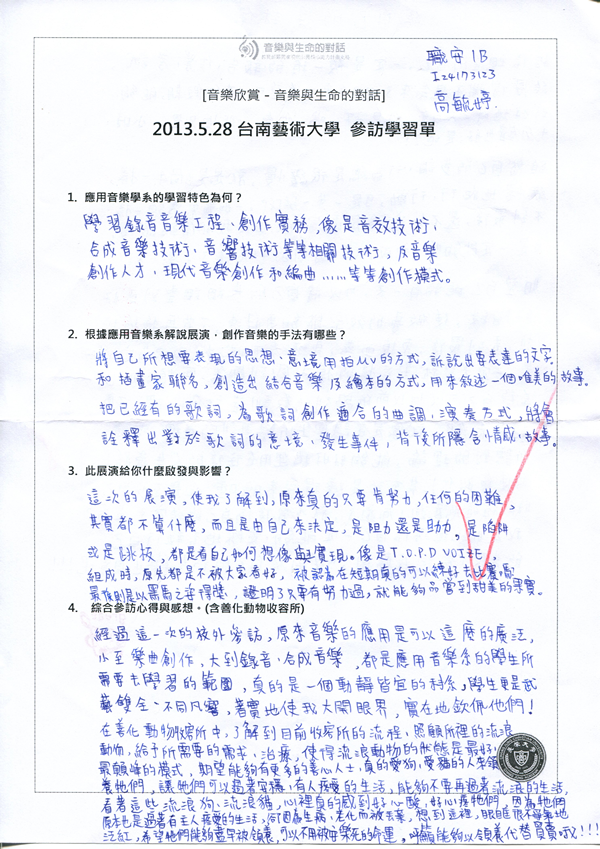 音樂與生命的對話
職安1B
I24173123
高毓婷
[音樂欣賞－音樂與生命的對話]
2013.5.28 台南藝術大學 參訪學習單
1. 應用音樂學系的學習特色為何？
學習錄音音樂工程、創作實務,像是音效技術、
合成音樂技術、音響技術等等相關技術,及音樂
創作人才,現代音樂創作和編曲……等等創作模式。
2. 根據應用音樂系解說展演，創作音樂的手法有哪些？
將自己所想要表現的思想、意境用拍MV的方式,訴說出要表達的文字
和插畫家聯名,創造出結合音樂及繪本的方式,用來敘述一個唯美的故事。
把已經有的歌詞,為歌詞創作適合的曲調、演奏方式,將會
詮釋出對於歌詞的意境、發生事件,背後所隱含情感、故事。
3. 此展演給你什麼啟發與影響？
這次的展演,使我了解到,原來真的只要肯努力,任何的困難,
其實都不算什麼,而且是由自己來決定,是阻力還是助力,是陷阱
或是跳板,都是看自己如何想像與實現。像是T.O.P.D VOIZE,
組成時,原先都是不被大家看好,被認為在短期真的可以練好去比賽嗎?
最後則是以黑馬之姿得獎,證明了只要有努力過,就能夠品嘗到甜美的果實。
4. 綜合參訪心得與感想。(含善化動物收容所)
經過這一次的校外參訪,原來音樂的應用是可以這麼的廣泛,
小至樂曲創作,大到錄音、合成音樂,都是應用音樂系的學生所
需要去學習的範圍,真的是一個動靜皆宜的科系,學生更是武
藝雙全、不同凡響,著實地使我大開眼界,實在地欽佩他們!
在善化動物收容所中,了解到目前收容所的流程,照顧所裡的流浪
動物,給予所需要的需求、治療,使得流浪動物的狀態是最好、
最顧峰的模式,期望能夠有更多的善心人士,真的愛狗、愛貓的人來領
養牠們,讓牠們可以過著安穩、有人疼愛的生活,能夠不要再過著流浪的生活,
看著這些流浪狗、流浪貓,心裡真的感到好心酸、好心疼牠們,因為牠們
原本也是過著有主人疼愛的生活,卻因為生病、老化而被丟棄,想到這裡,眼眶很不爭氣地
泛紅,希望牠們能夠盡早被領養,可以不用被安樂死的命運,呼籲能夠以領養代替買賣哦!!!